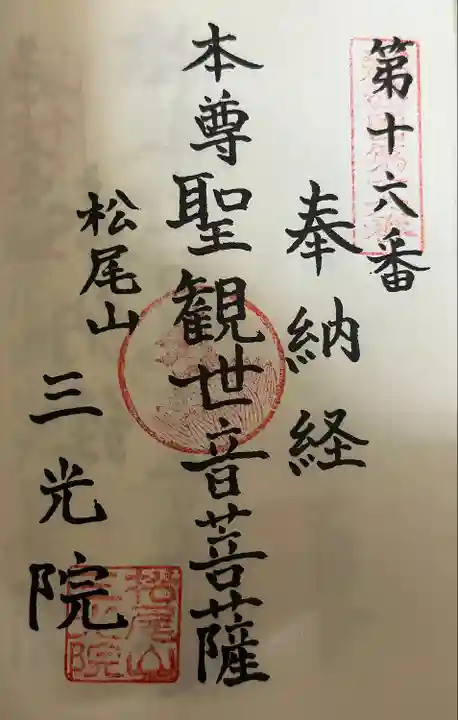 第十六番
奉納経
本尊聖観世音菩薩
松尾山
三光院
松尾山
三光院